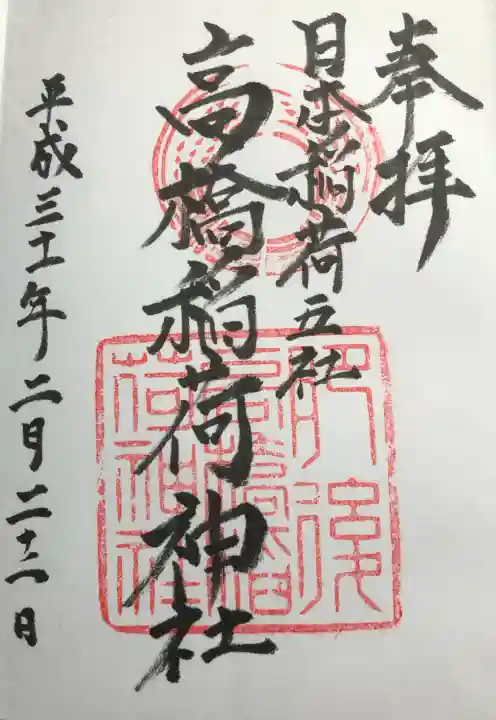 奉拝
日本稲荷五社
高橋稲荷神社
肥後
高橋稲
荷神社
平成三十一年二月二十二日